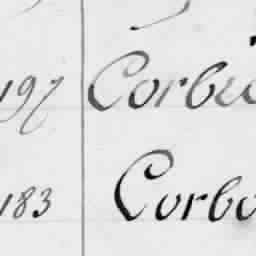 197 Corbu
183 Corbo